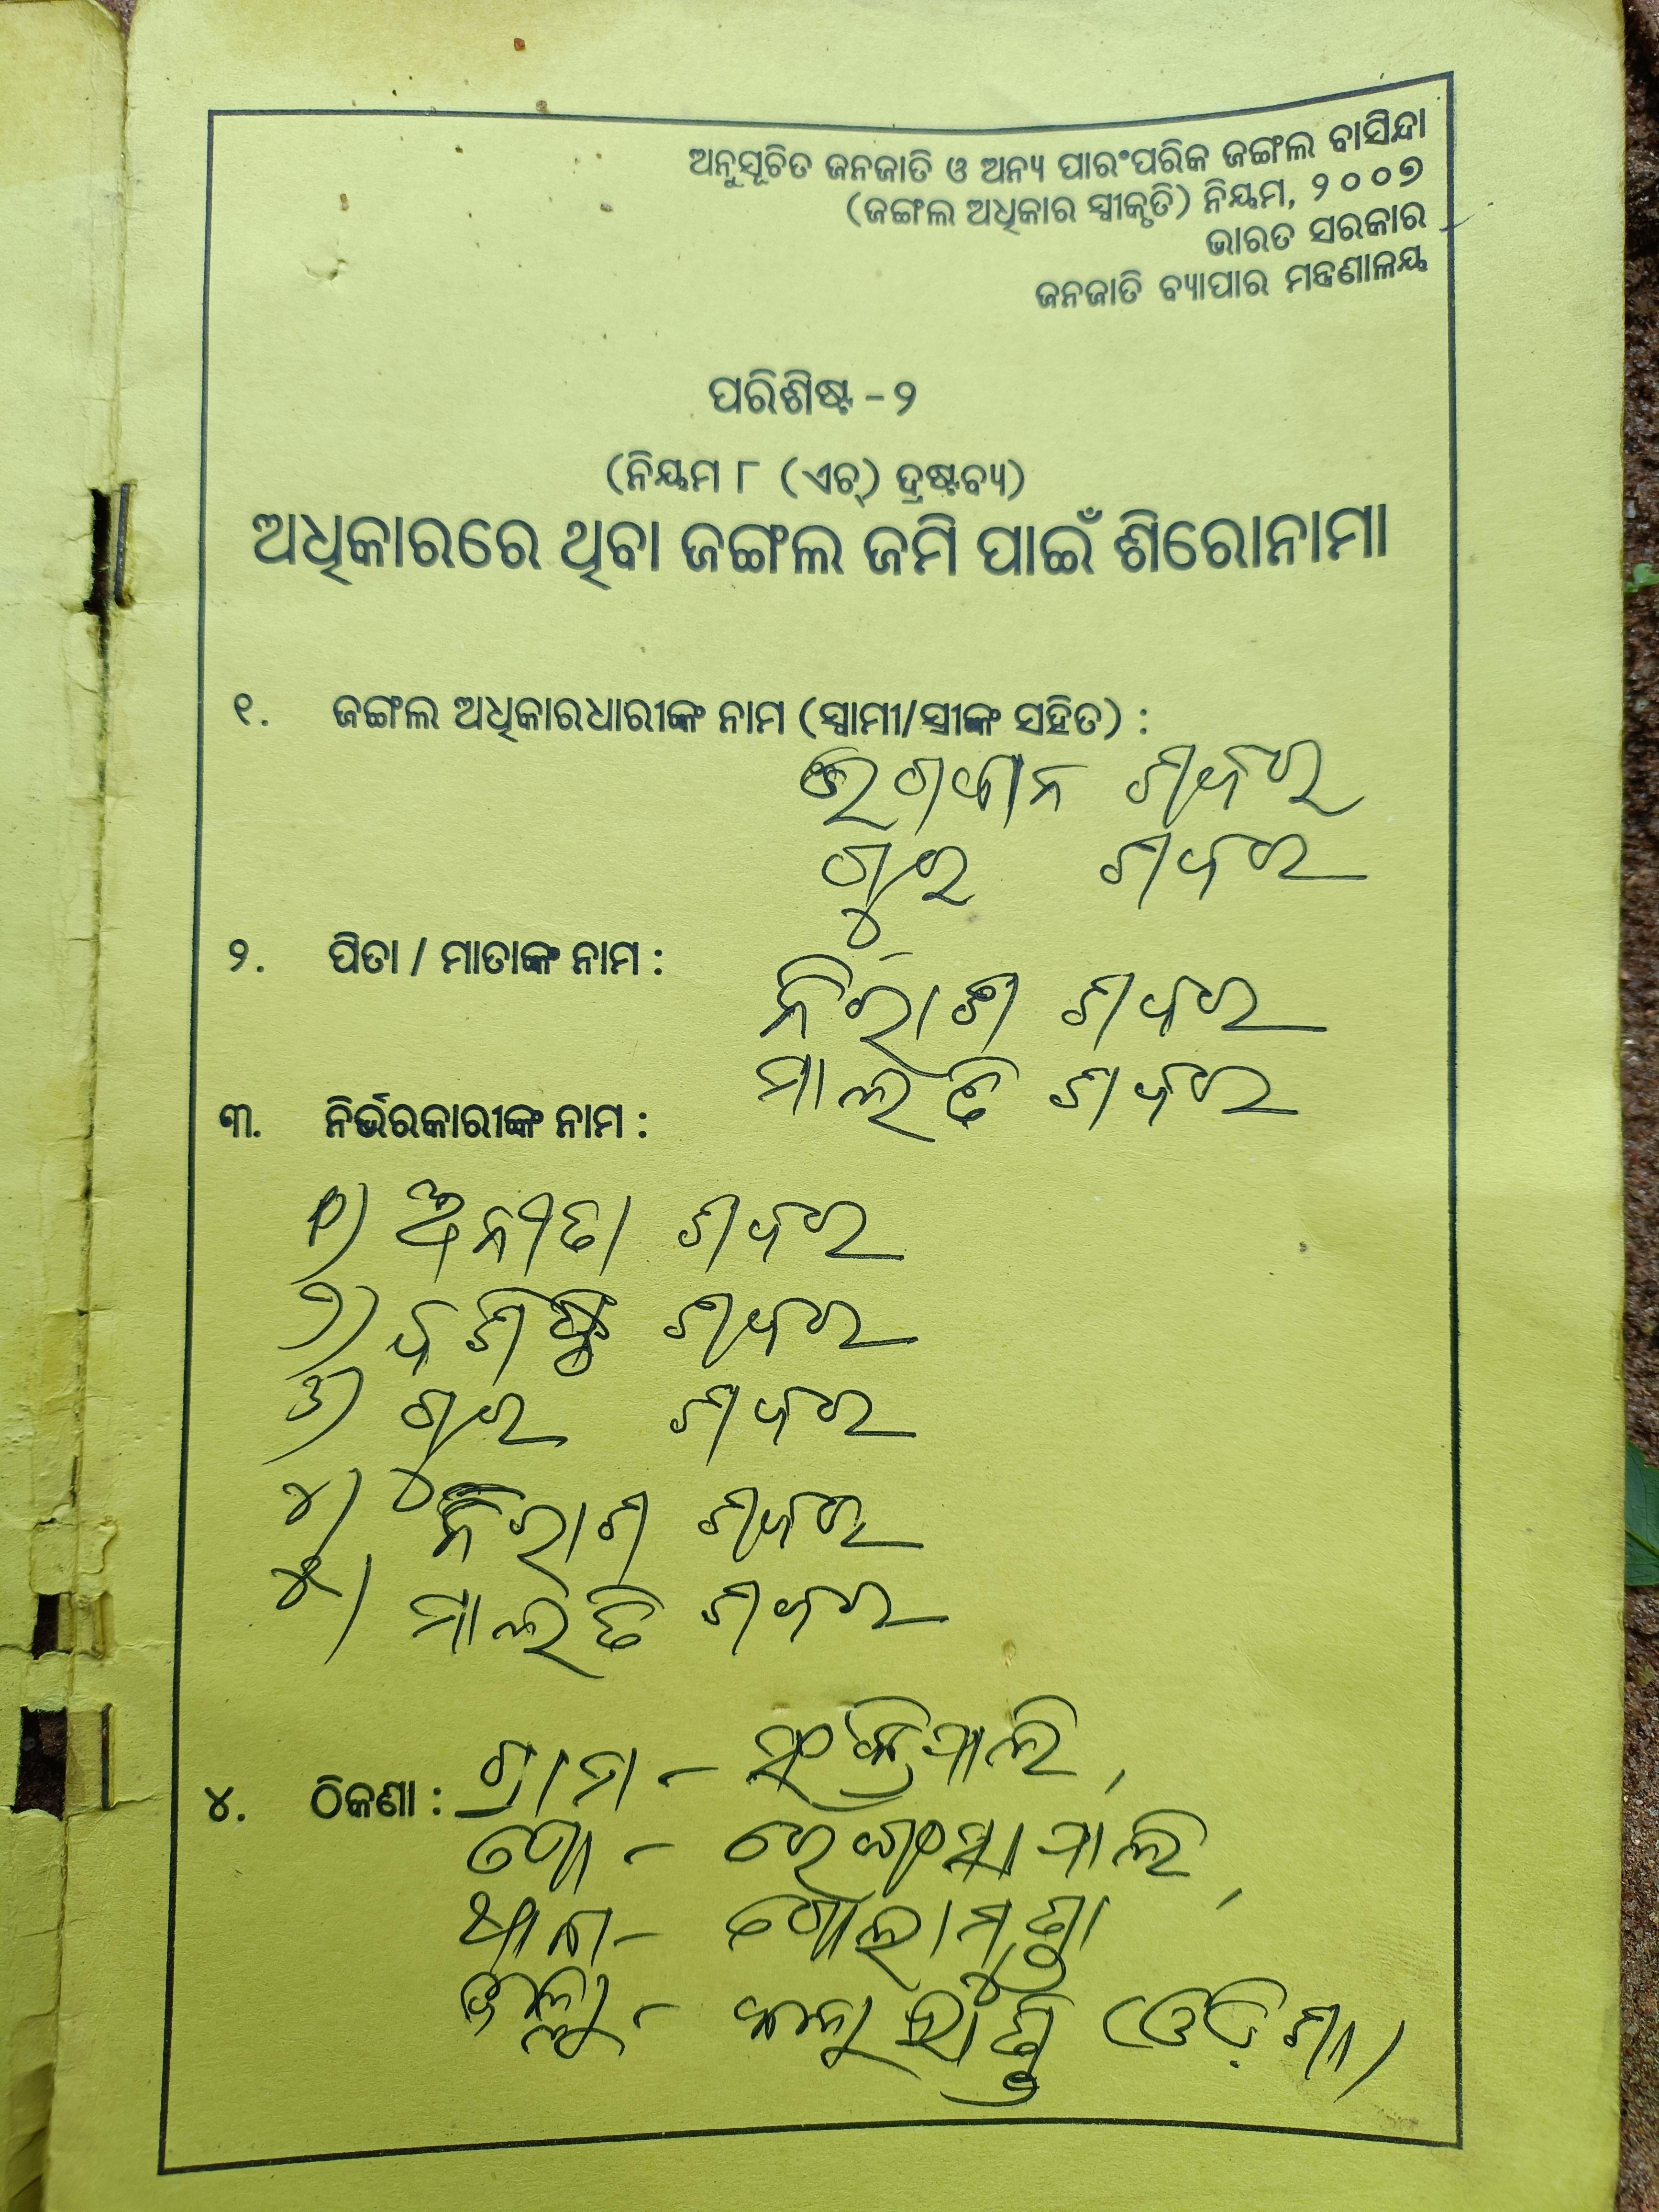 ଅନୁସୂଚିତ ଜନଜାତି ଓ ଅନ୍ୟ ପାରଂପରିକ ଜଙ୍ଗଲ ବାସିନ୍ଦା
(ଜଙ୍ଗଲ ଅଧିକାର ସ୍ୱୀକୃତି) ନିୟମ, ୨୦୦୭
ଭାରତ ସରକାର
ଜନଜାତି ବ୍ୟାପାର ମନ୍ତ୍ରଣାଳୟ
ପରିଶିଷ୍ଟ - ୨
(ନିୟମ ୮ (ଏଚ୍) ଦ୍ରଷ୍ଟବ୍ୟ)
ଅଧିକାରରେ ଥିବା ଜଙ୍ଗଲ ଜମି ପାଇଁ ଶିରୋନାମା
୧. ଜଙ୍ଗଲ ଅଧିକାରଧାରୀଙ୍କ ନାମ (ସ୍ୱାମୀ/ସ୍ତ୍ରୀଙ୍କ ସହିତ) :
ଭଗବାନ ଶବର
ଗୁର ଶବର
୨. ପିତା / ମାତାଙ୍କ ନାମ :
ନିରାଶ ଶବର
ମାଲତି ଶବର
୩. ନିର୍ଭରକାରୀଙ୍କ ନାମ :
୧) ଅନୀତା ଶବର
୨) ବଶିଷ୍ଠ ଶବର
୩) ଗୁର ଶବର
୪) ନିରାଶ ଶବର
୫) ମାଲତି ଶବର
୪. ଠିକଣା : ଗ୍ରାମ -
ପୋ -
ଥାନା - ଗୋଲାମୁଣ୍ଡା
ଜିଲ୍ଲା - କଳାହାଣ୍ଡି (ଓଡ଼ିଶା)